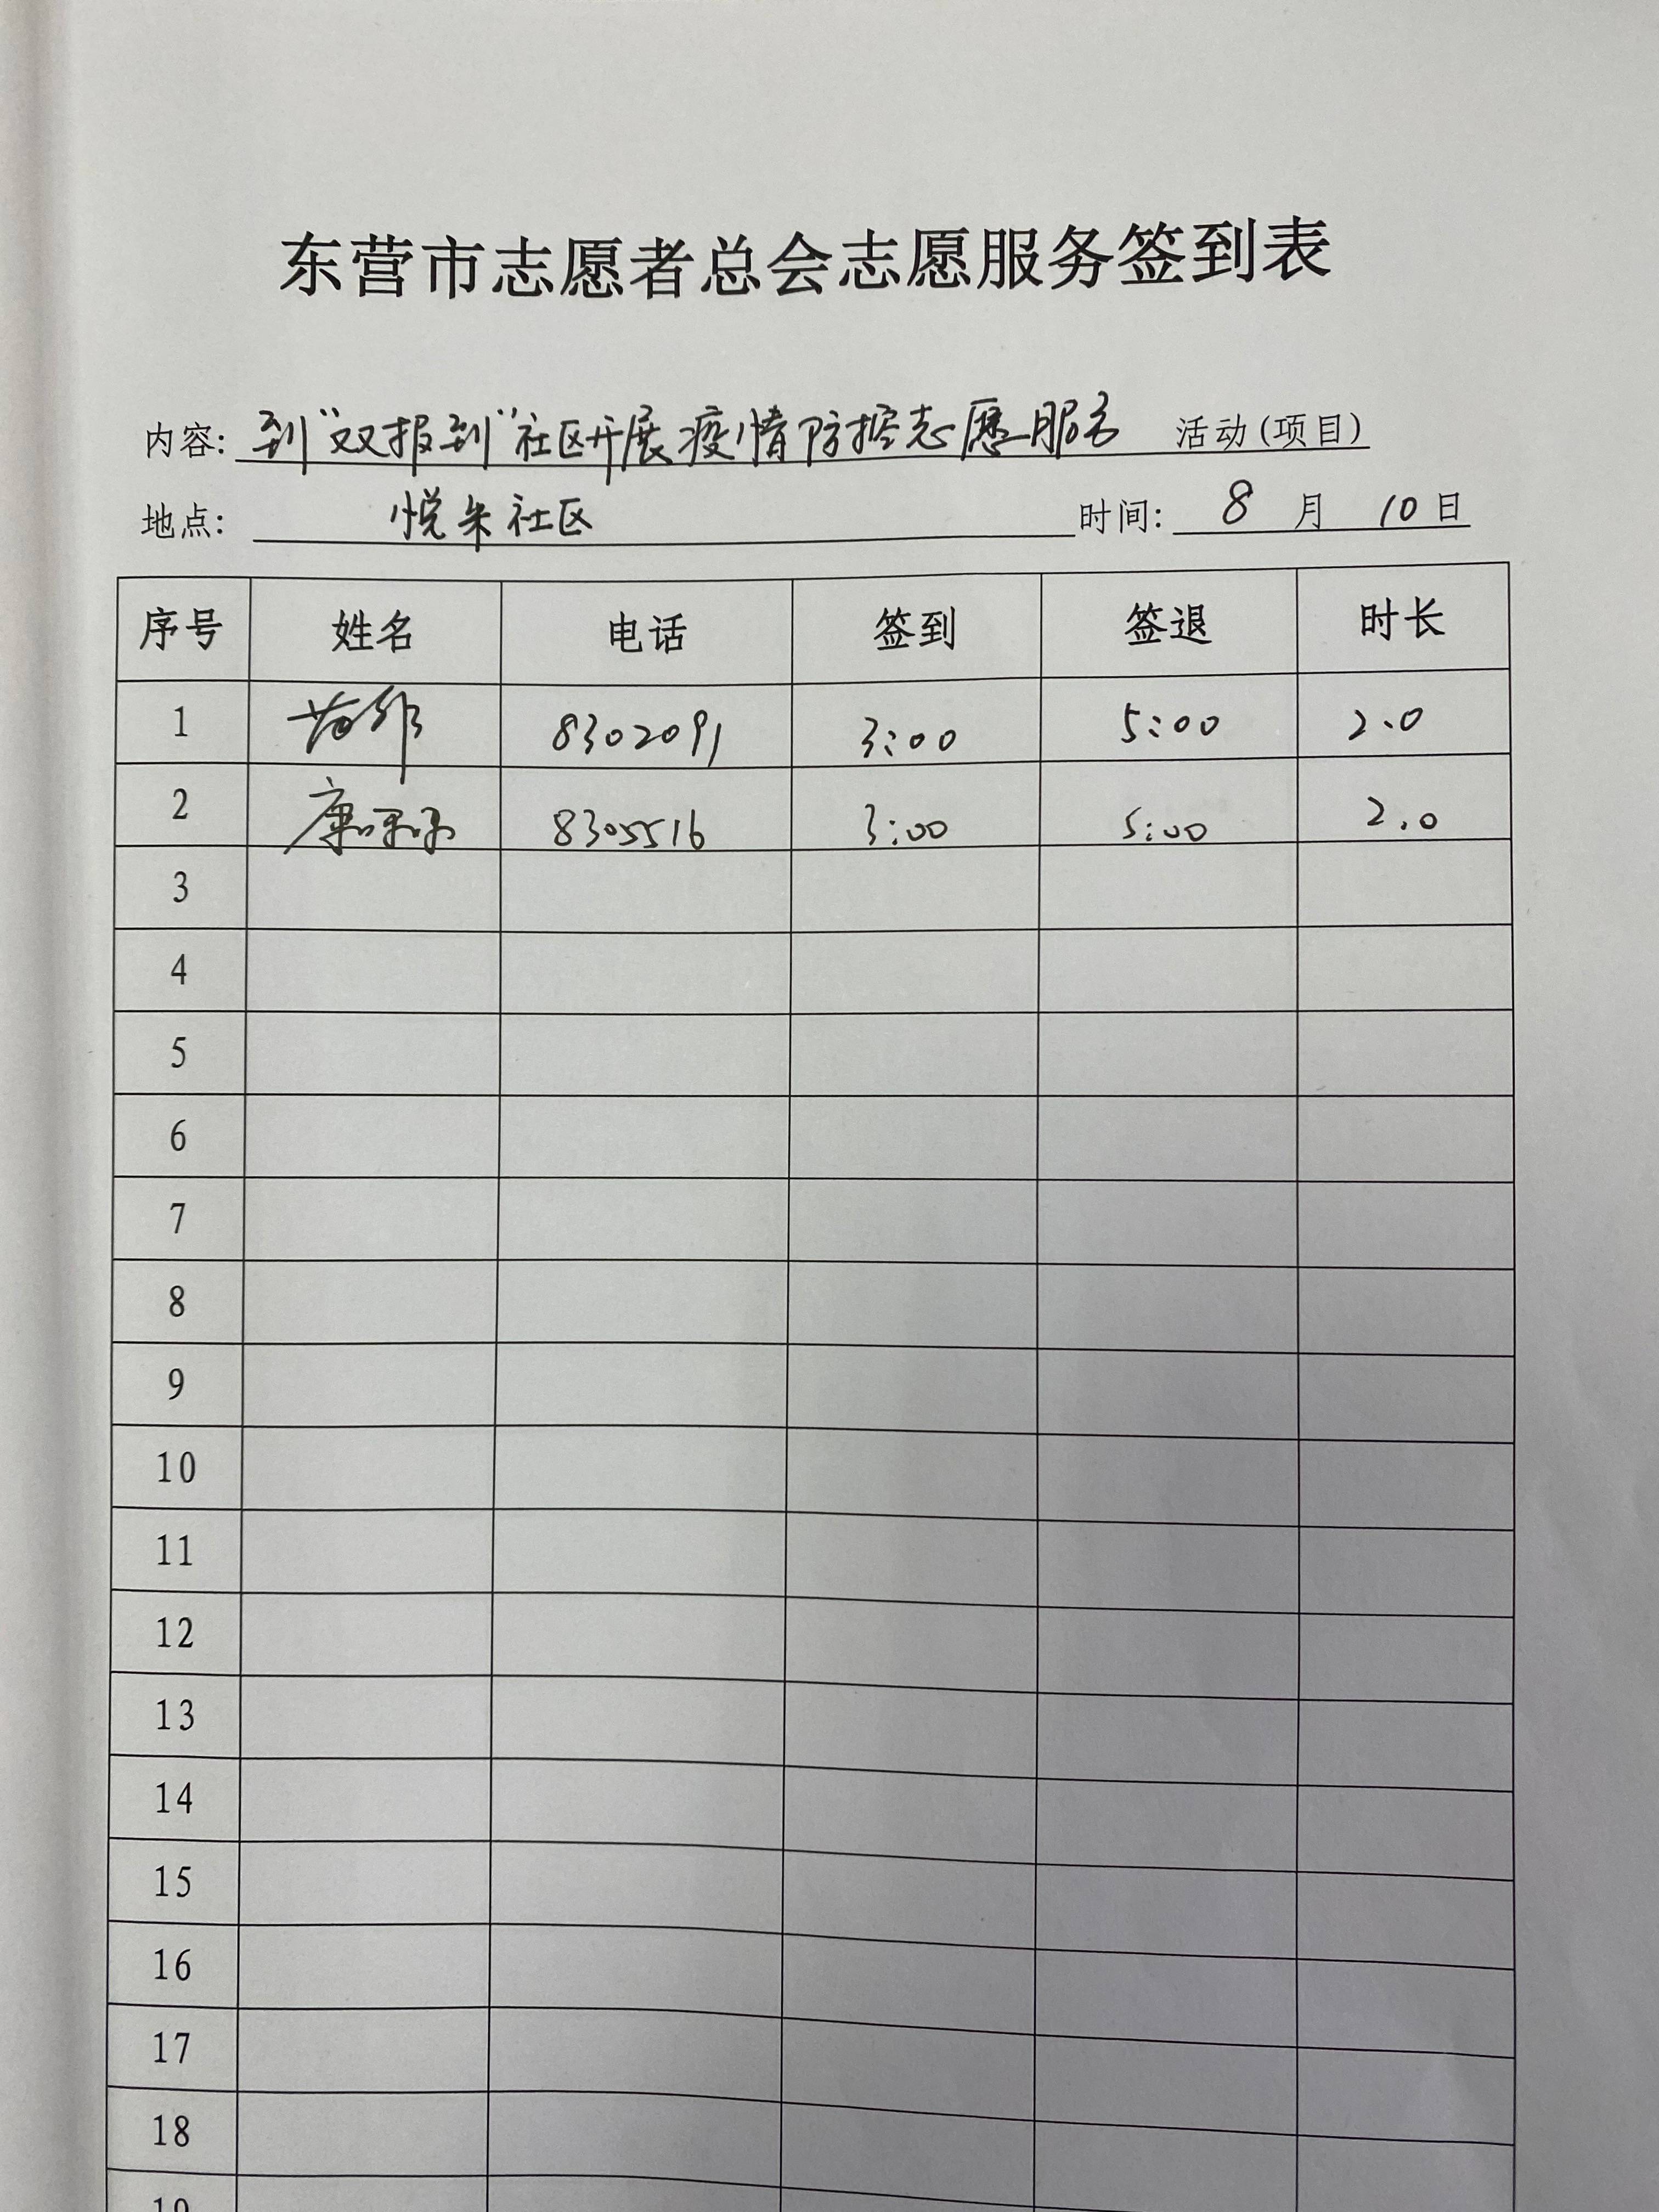 东营市志愿者总会志愿服务签到表
内容: 到"双报到"社区开展疫情防控志愿服务 活动(项目)
地点: 悦来社区 时间: 8 月 10 日
序号 姓名 电话 签到 签退 时长
1 8302091 3:00 5:00 2.0
2 康 8305516 3:00 5:00 2.0
3
4
5
6
7
8
9
10
11
12
13
14
15
16
17
18
19